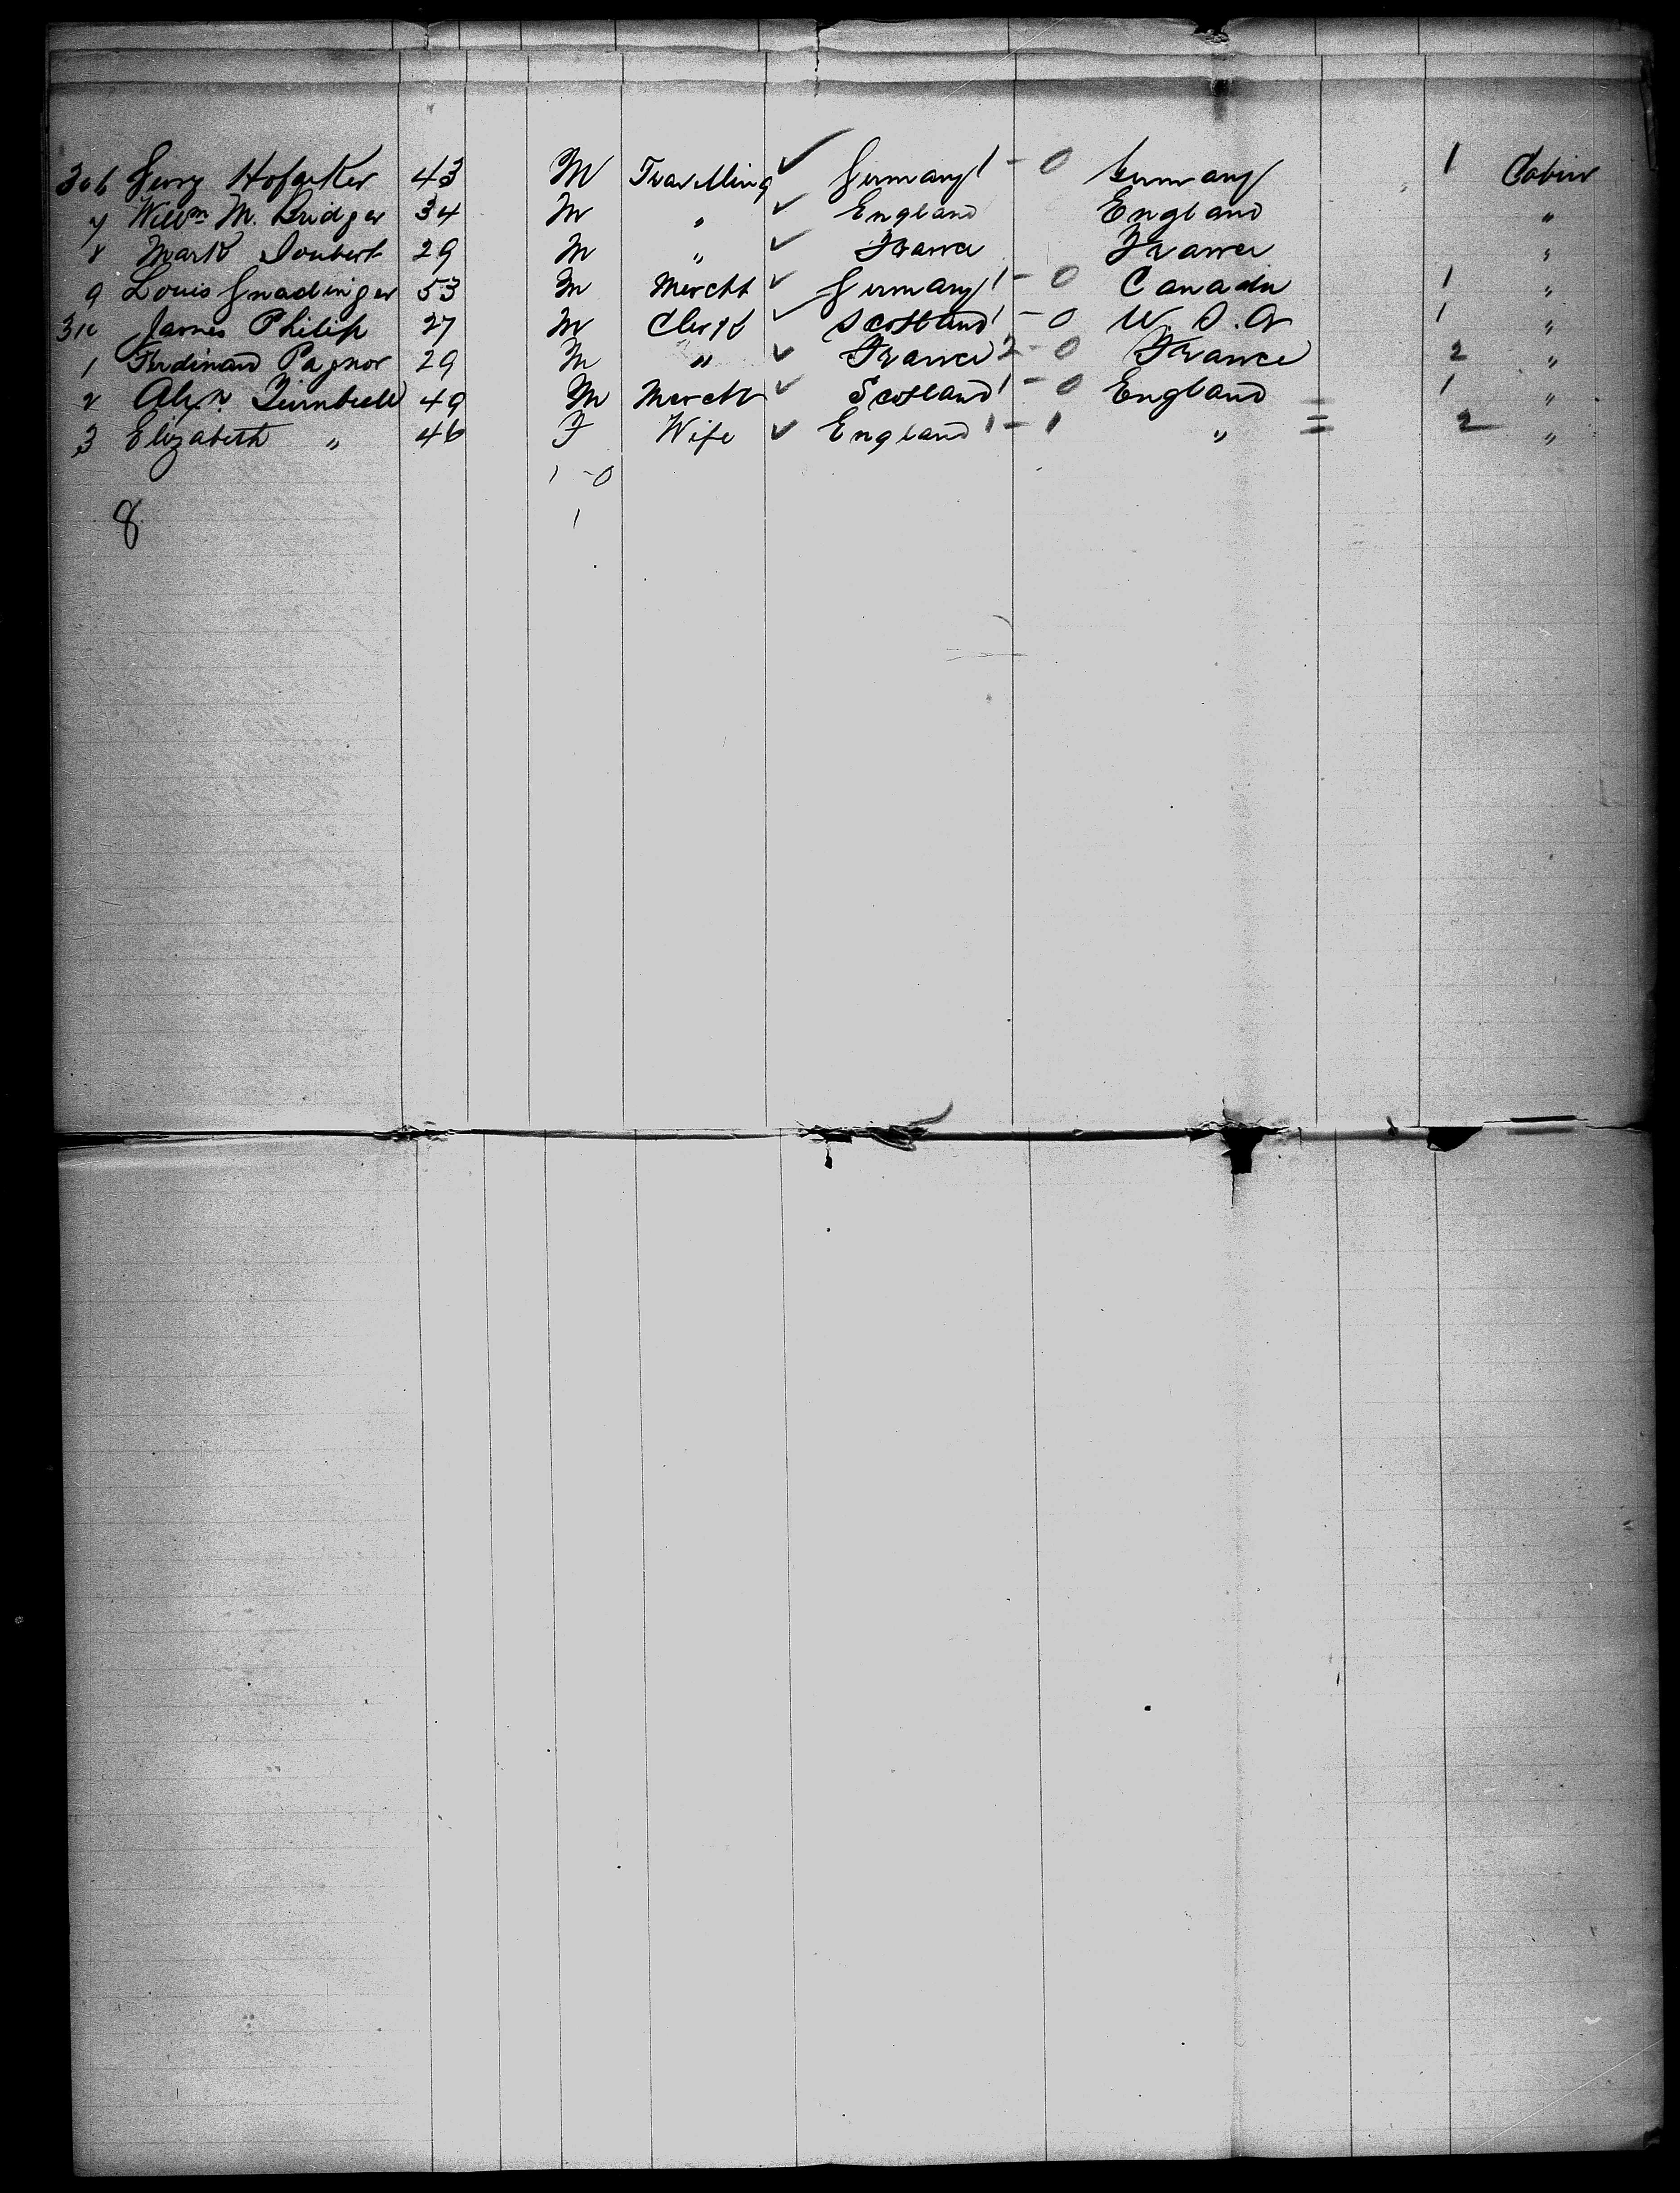 306 Georg Hofacker 43 M Travelling ✓ Germany 1 - 0 Germany 1 Cabin
7 Willm M. Bridger 34 M " ✓ England England "
8 Mark Joubert 29 M " ✓ France France "
9 Louis Gnadinger 53 M Mercht ✓ Germany 1 - 0 Canada 1 "
310 James Philip 27 M Clerk ✓ Scotland 1 - 0 U.S.A 1 "
1 Ferdinand Pagnor 29 M " ✓ France 2 - 0 France 2 "
2 Alexr. Turnbull 49 M Mercht ✓ Scotland 1 - 0 England = 1 "
3 Elizabeth " 46 F Wife ✓ England 1 - 1 " = 2 "
1 - 0
8 1